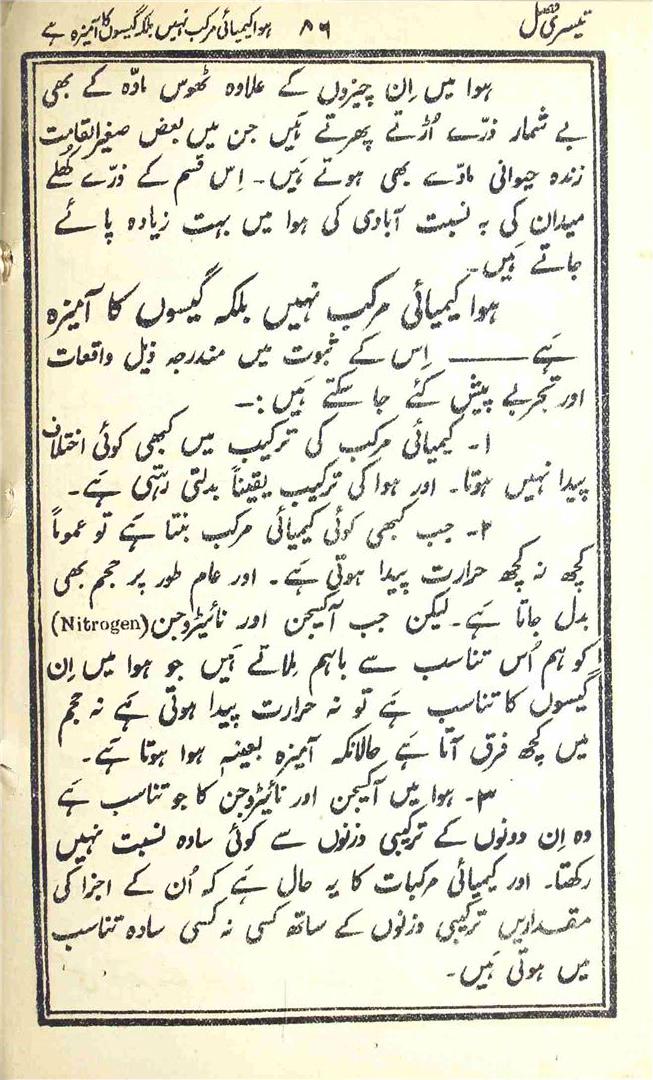 تیسری فصل ۸۶ ہوا کیمیائی مرکب نہیں بلکہ گیسوں کا آمیزہ ہے
ہوا میں اِن چیزوں کے علاوہ ٹھوس مادّہ کے بھی
بے شمار ذرّے اُڑتے پھرتے ہَیں جن میں بعض صغیرالقامت
زندہ حیوانی مادّے بھی ہوتے ہَیں۔ اِس قسم کے ذرّے کُھلے
میدان کی بہ نسبت آبادی کی ہوا میں بہت زیادہ پائے
جاتے ہَیں۔
ہوا کیمیائی مرکب نہیں بلکہ گیسوں کا آمیزہ
ہَے ——— اِس کے ثبوت میں مندرجہ ذیل واقعات
اور تجربے پیش کئے جا سکتے ہَیں :۔
۱۔ کیمیائی مرکب کی ترکیب میں کبھی کوئی اختلاف
پیدا نہیں ہوتا۔ اور ہوا کی ترکیب یقیناً بدلتی رہتی ہَے۔
۲۔ جب کبھی کوئی کیمیائی مرکب بنتا ہَے تو عموماً
کچھ نہ کچھ حرارت پیدا ہوتی ہَے۔ اور عام طور پر حجم بھی
بدل جاتا ہَے۔ لیکن جب آکسیجن اور نائیٹروجن (Nitrogen)
کو ہم اُس تناسب سے باہم مِلاتے ہَیں جو ہوا میں اِن
گیسوں کا تناسب ہَے تو نہ حرارت پیدا ہوتی ہَے نہ حجم
میں کچھ فرق آتا ہَے حالانکہ آمیزہ بعینہٖ ہوا ہوتا ہَے۔
۳۔ ہوا میں آکسیجن اور نائیٹروجن کا جو تناسب ہَے
وہ اِن دونوں کے ترکیبی وزنوں سے کوئی سادہ نسبت نہیں
رکھتا۔ اور کیمیائی مرکبات کا یہ حال ہَے کہ اُن کے اجزا کی
مقداریں ترکیبی وزنوں کے ساتھ کسی نہ کسی سادہ تناسب
میں ہوتی ہَیں۔